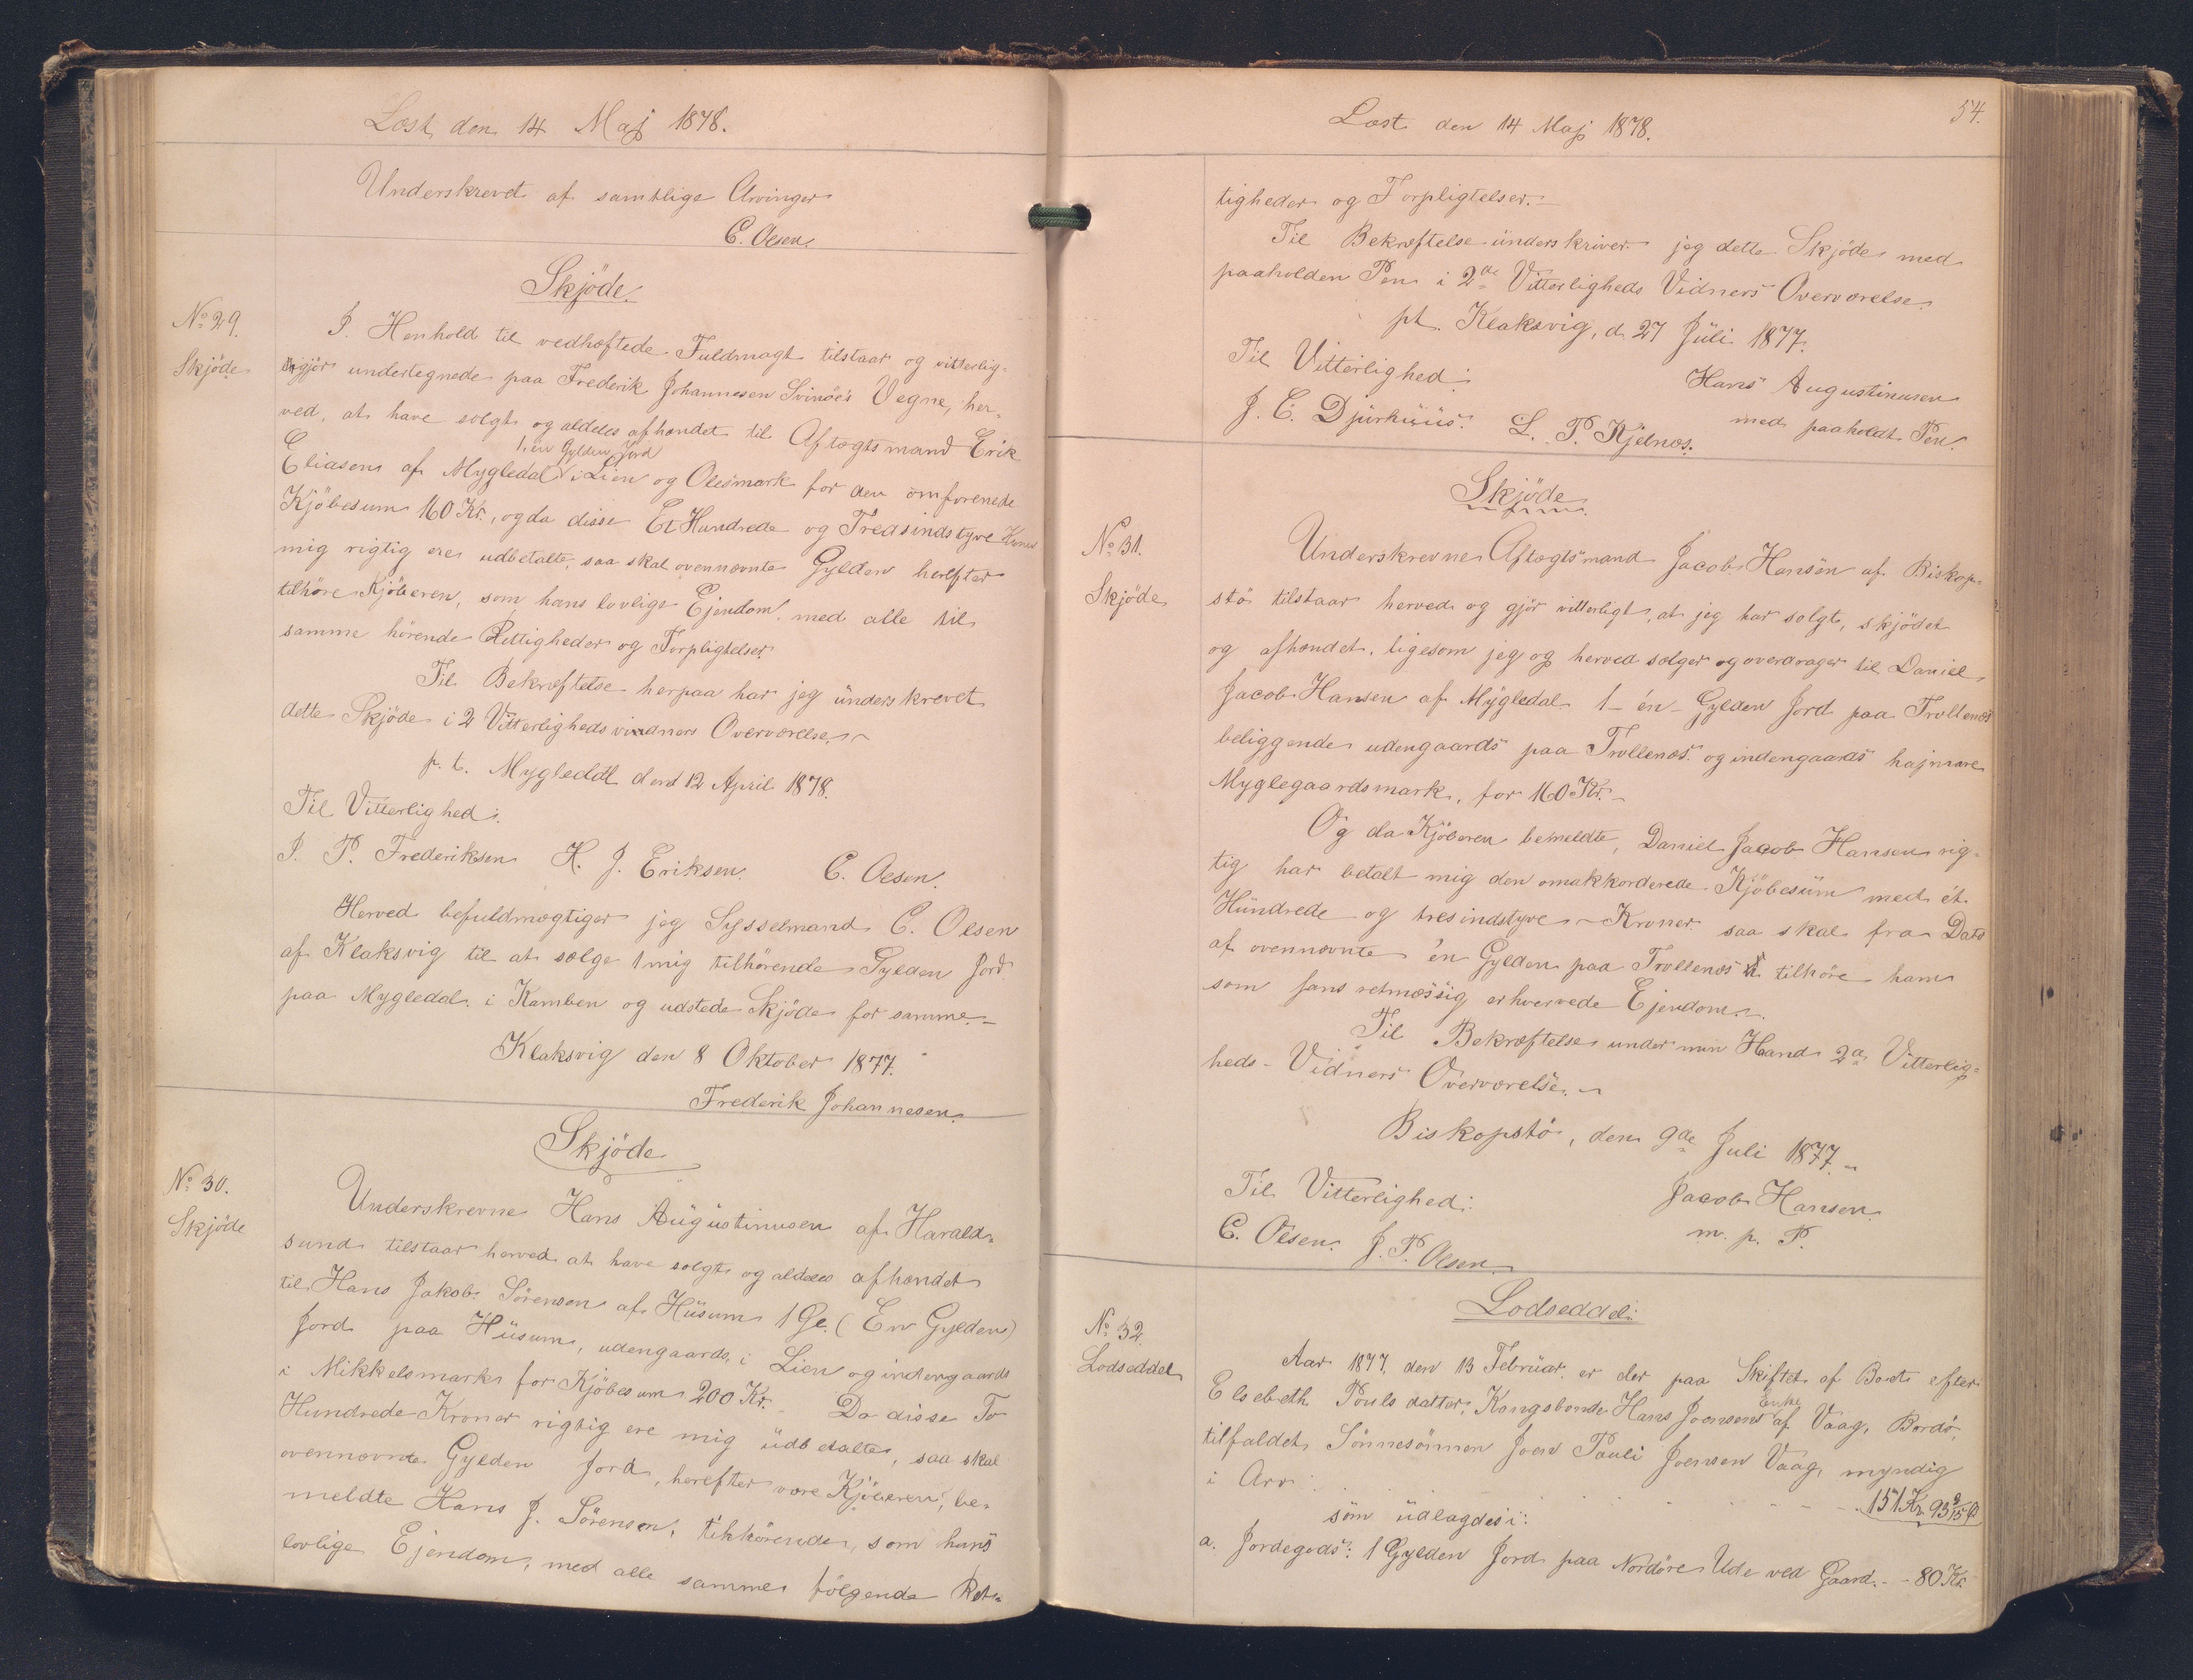 Læst den 14 Maj 1878.
Underskrevet af samtlige Arvinger
C. Olsen.
Skjöde.
No 29.
Skjöde
I Henhold til vedhæftede Fuldmagt tilstaar og vitterlig-
gjör undertegnede paa Frederik Johannesen Svinöe's Vegne, her-
ved, at have solgt og aldeles afhændet til Aftægtsmand Erik
1, en Gylden Jord
Eliasen af Mygledal i Lien og Olesmark for den omforenede
Kjöbesum 160 Kr., og da disse Et Hundrede og Tredsindstyve Kroner
mig rigtig ere udbetalte, saa skal ovennævnte Gylden herefter
tilhöre Kjöberen, som hans lovlige Ejendom, med alle til
samme hörende Rettigheder og Forpligtelser.
Til Bekræftelse herpaa har jeg underskrevet
dette Skjöde i 2 Vitterlighedsvidners Overværelse.
p. t. Mygledal den 12 April 1878.
Til Vitterlighed:
J. P. Frederiksen H. J. Eriksen. C. Olsen.
Herved befuldmægtiger jeg Sysselmand C. Olsen
af Klaksvig til at sælge 1 mig tilhörende Gylden Jord
paa Mygledal i Kamben og udstede Skjöde for samme.-
Klaksvig den 8 Oktober 1877.
Frederik Johannesen.
Skjöde
No 30.
Skjöde
Underskrevne Hans Augustinusen af Harald-
sund tilstaar herved at have solgt og aldeles afhændet
til Hans Jakob Sörensen af Husum 1 Gl. (En Gylden)
Jord paa Husum, udengaards i Lien og indengaards
i Mikkelsmark for Kjöbesum 200 Kr. Da disse To
Hundrede Kroner rigtig ere mig udbetalte, saa skal
ovennævnte Gylden Jord, herefter være Kjöberen, be-
meldte Hans J. Sörensen, tilhörende, som hans
lovlige Ejendom, med alle samme fölgende Ret-
Læst den 14 Maj 1878.
54.
tigheder og Forpligtelser.-
Til Bekræftelse underskriver jeg dette Skjöde med
paaholden Pen i 2de Vitterligheds Vidners Overværelse.
pt. Klaksvig, d. 27 Juli 1877.
Til Vitterlighed:
Hans Augustinusen
J. C. Djurhuus. L. P. Kjelnæs. med paaholdt Pen.
Skjöde
No 31.
Skjöde
Underskrevne Aftægtsmand Jacob Hansen af Biskop-
stö tilstaar herved og gjör vitterligt, at jeg har solgt, skjödet
og afhændet, ligesom jeg og herved sælger og overdrager til Daniel
Jacob Hansen af Mygledal 1 - én - Gylden Jord paa Trollenæs
beliggende udengaards paa Trollenæs og indengaards hajmare
Myglegaardsmark, for 160 Kr.-
Og da Kjöberen bemeldte, Daniel Jacob Hansen rig-
tig har betalt mig den omakkorderede Kjöbesum med ét
Hundrede og tresindstyve - Kroner saa skal fra Dato
af ovennævnte én Gylden paa Trollenæs tilhöre ham
som hans retmæssig erhvervede Ejendom.-
Til Bekræftelse under min Haand 2de Vitterlig-
heds-Vidners Overværelse.-
Biskopstö, den 9de Juli 1877.-
Til Vitterlighed:
Jacob Hansen
C. Olsen. J. P. Olsen.
m. p. P.
Lodseddel.
No 32.
Lodseddel
Aar 1877, den 13 Februar er der paa Skiftet af Boet efter
Elsebeth Pouls datter, Kongsbonde Hans Joensens Enke af Vaag, Bordö,
tilfaldet Sönnesönnen Joen Pauli Joensen Vaag, myndig
i Arv . . . . . . 151 Kr. 93 9/15 Ø
som udlagdes i:
a. Jordegods: 1 Gylden Jord paa Nordöre Ude ved Gaard - - 80 Kr.